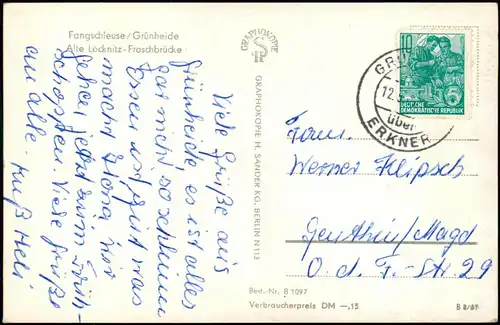 Fangschleuse/Grünheide
Alte Löcknitz-Froschbrücke
Viele Grüße aus
Grünheide es ist alles
gar nicht so schlimm
Essen ist gut was
macht
gehe jetzt zum Früh-
schoppen. Viele Grüße
an alle. Kuß Heli
GRAPHOKOPIE
GRAPHOKOPIE H. SANDER KG., BERLIN N 113
10
DEUTSCHE
DEMOKRATISCHE REPUBLIK
über
ERKNER
12.
Frau
Werner Klipsch
Genthin/Magd
O. d. F.-Str. 29
Best.-Nr. B 1097
Verbraucherpreis DM –,15
B 8/61